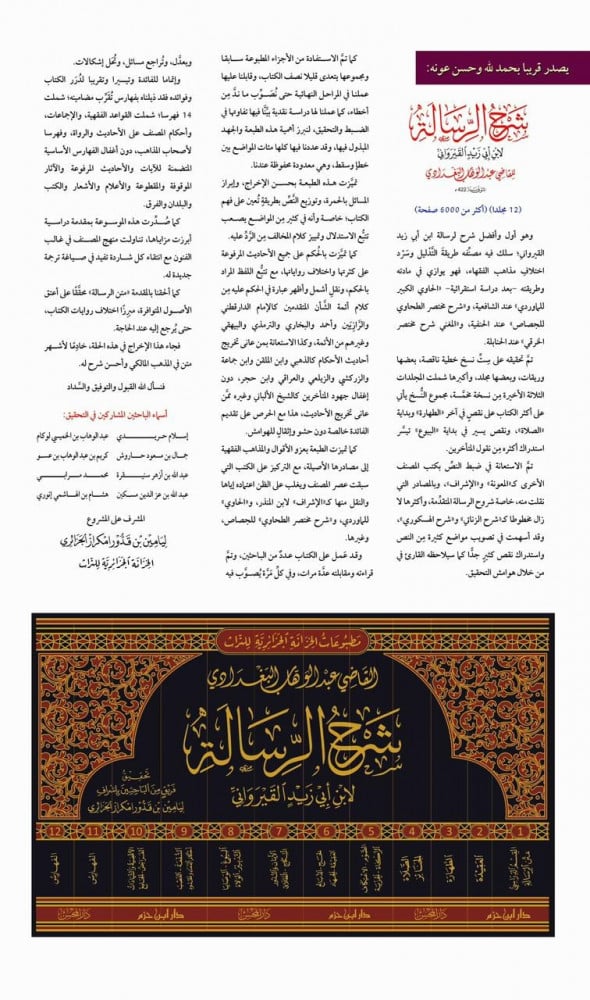 يصدر قريبا بحمد لله وحسن عونه:
شرح الرسالة
لابن أبي زيد القيرواني
للقاضي عبد الوهاب البغدادي
(12 مجلدا) (أكثر من 6000 صفحة)
وهو أول وأفضل شرح لرسالة ابن أبي زيد
القيرواني؛ سلك فيه مصنِّفه طريقةَ التَّدليل وسَرْد
اختلاف مذاهب الفقهاء، فهو يوازي في مادته
وطريقته -بعد دراسة استقرائية- «الحاوي الكبير
للماوردي» عند الشافعية، و«شرح مختصر الطحاوي
للجصاص» عند الحنفية، و«المغني شرح مختصر
الخرقي» عند الحنابلة.
تمَّ تحقيقه على سِتِّ نسخ خطية ناقصة، بعضها
وريقات، وبعضها مجلد، وأكبرها شملت المجلدات
الثلاثة الأخيرة من نسخة مخمَّسة، مجموع النُّسخ يأتي
على أكثر الكتاب على نقصٍ في آخر «الطهارة» وبداية
«الصلاة»، ونقص يسير في بداية «البيوع» تيسَّر
استدراك أكثره مِن نقول المتأخرين.
تمَّ الاستعانة في ضبط النصِّ بكتب المصنف
الأخرى كـ«المعونة» و«الإشراف»، وبالمصادر التي
نقلت منه، خاصة شروح الرسالة المتقدِّمة، وأكثرها لا
زال مخطوطا كـ«شرح الزناتي» و«شرح الهسكوري»،
وقد أسهمت في تصويب مواضع كثيرة مِن النص
واستدراك نقص كثيرٍ جدًّا كما سيلاحظه القارئ في
من خلال هوامش التحقيق.
كما تمَّ الاستفادة من الأجزاء المطبوعة سابقا
ومجموعها يتعدى قليلا نصف الكتاب، وقابلنا عليها
عملنا في المراحل النهائية حتى نُصَوِّب ما ندَّ مِن
أخطاء، كما عملنا لها دراسة نقدية بيَّنَّا فيها تفاوتها في
الضبط والتحقيق، لنبرز أهمية هذه الطبعة والجهد
المبذول فيها، وقد عددنا فيها كلها مئات المواضع بين
خطإٍ وسقط، وهي معدودة محفوظة عندنا.
تميَّزت هذه الطبعة بحسن الإخراج، وإبراز
المسائل بالحمرة، وتوزيع النَّصِّ بطريقةٍ تُعين على فهم
الكتاب؛ خاصة وأنه في كثيرٍ مِن المواضع يصعب
تتبُّع الاستدلال وتمييز كلام المخالف مِن الرَّدِّ عليه.
كما تميَّزت بالحُكم على جميع الأحاديث المرفوعة
على كثرتها واختلاف رواياتها، مع تتبُّع اللفظ المراد
بالحكم، ونقلِ أشمل وأظهر عبارة في الحكم عليه مِن
كلام أئمة الشَّأن المتقدمين كالإمام الدارقطني
والرَّازِيَّين وأحمد والبخاري والترمذي والبيهقي
وغيرهم من الأئمة، وكذا الاستعانة بمن عانى تخريج
أحاديث الأحكام كالذهبي وابن الملقن وابن جماعة
والزركشي والزيلعي والعراقي وابن حجر، دون
إغفال جهود المتأخرين كالشيخ الألباني وغيره ممَّن
عانى تخريج الأحاديث، هذا مع الحرص على تقديم
الفائدة خالصة دون حشو وإثقال للهوامش.
كما تميزت الطبعة بعزو الأقوال والمذاهب الفقهية
إلى مصادرها الأصيلة، مع التركيز على الكتب التي
سبقت عصر المصنف ويغلب على الظن اعتماده إياها
والنقل منها كـ«الإشراف» لابن المنذر، و«الحاوي»
للماوردي، و«شرح مختصر الطحاوي» للجصاص،
وغيرها.
وقد عَمل على الكتاب عددٌ من الباحثين، وتمَّ
قراءته ومقابلته عدَّة مرات، وفي كلِّ مَرَّة يُصوَّب فيه
ويعدَّل، وتُراجع مسائل، وتُحَل إشكالات.
وإتماما للفائدة وتيسيرا وتقريبا لدُرَر الكتاب
وفوائده فقد ذيلناه بفهارس تُقرِّب مضامينه؛ شملت
14 فهرسا؛ شملت القواعد الفقهية، والإجماعات،
وأحكام المصنف على الأحاديث والرواة، وفهرسا
لأصحاب المذاهب، دون إغفال الفهارس الأساسية
المتضمنة للآيات والأحاديث المرفوعة والآثار
الموقوفة والمقطوعة والأعلام والأشعار والكتب
والبلدان والفرق.
كما صُدِّرت هذه الموسوعة بمقدمة دراسية
أبرزت مزاياها، تناولت منهج المصنف في غالب
الفنون مع انتقاء كل شاردة تفيد في صياغة ترجمة
جديدة له.
كما ألحقنا بالمقدمة «متن الرسالة» محقَّقًا على أعتق
الأصول المتوافرة، مبرزًا اختلاف روايات الكتاب،
حتى يُرجع إليه عند الحاجة.
فجاء هذا الإخراج في هذه الحلة، خادِمًا لأشهر
متن في المذهب المالكي وأحسن شرح له.
فنسأل الله القبول والتوفيق والسَّداد
أسماء الباحثين المشاركين في التحقيق:
إسلام حريدي عبد الوهاب بن الحميسي لوكام
جمال بن سعود حاروش كريم بن عبد الوهاب بن عو
عبد الله بن أزهر سنيقرة محمد سرباي
عبد الله بن عز الدين مسكين هشام بن الهاشمي إنوري
المشرف على المشروع
ليامين بن قدور امكراز الجزائري
الخزانة الجزائرية للتراث
مطبوعات الخزانة الجزائرية للتراث
القاضي عبد الوهاب البغدادي
شرح الرسالة
لابن أبي زيد القيرواني
تحقيق
فريق من الباحثين بإشراف
ليامين بن قدور امكراز الجزائري
1 2 3 4 5 6 7 8 9 10 11 12
العقيدة
الطهارة
الفهارس
الفهارس
دار ابن حزم دار المحسن دار ابن حزم دار المحسن دار ابن حزم دار المحسن